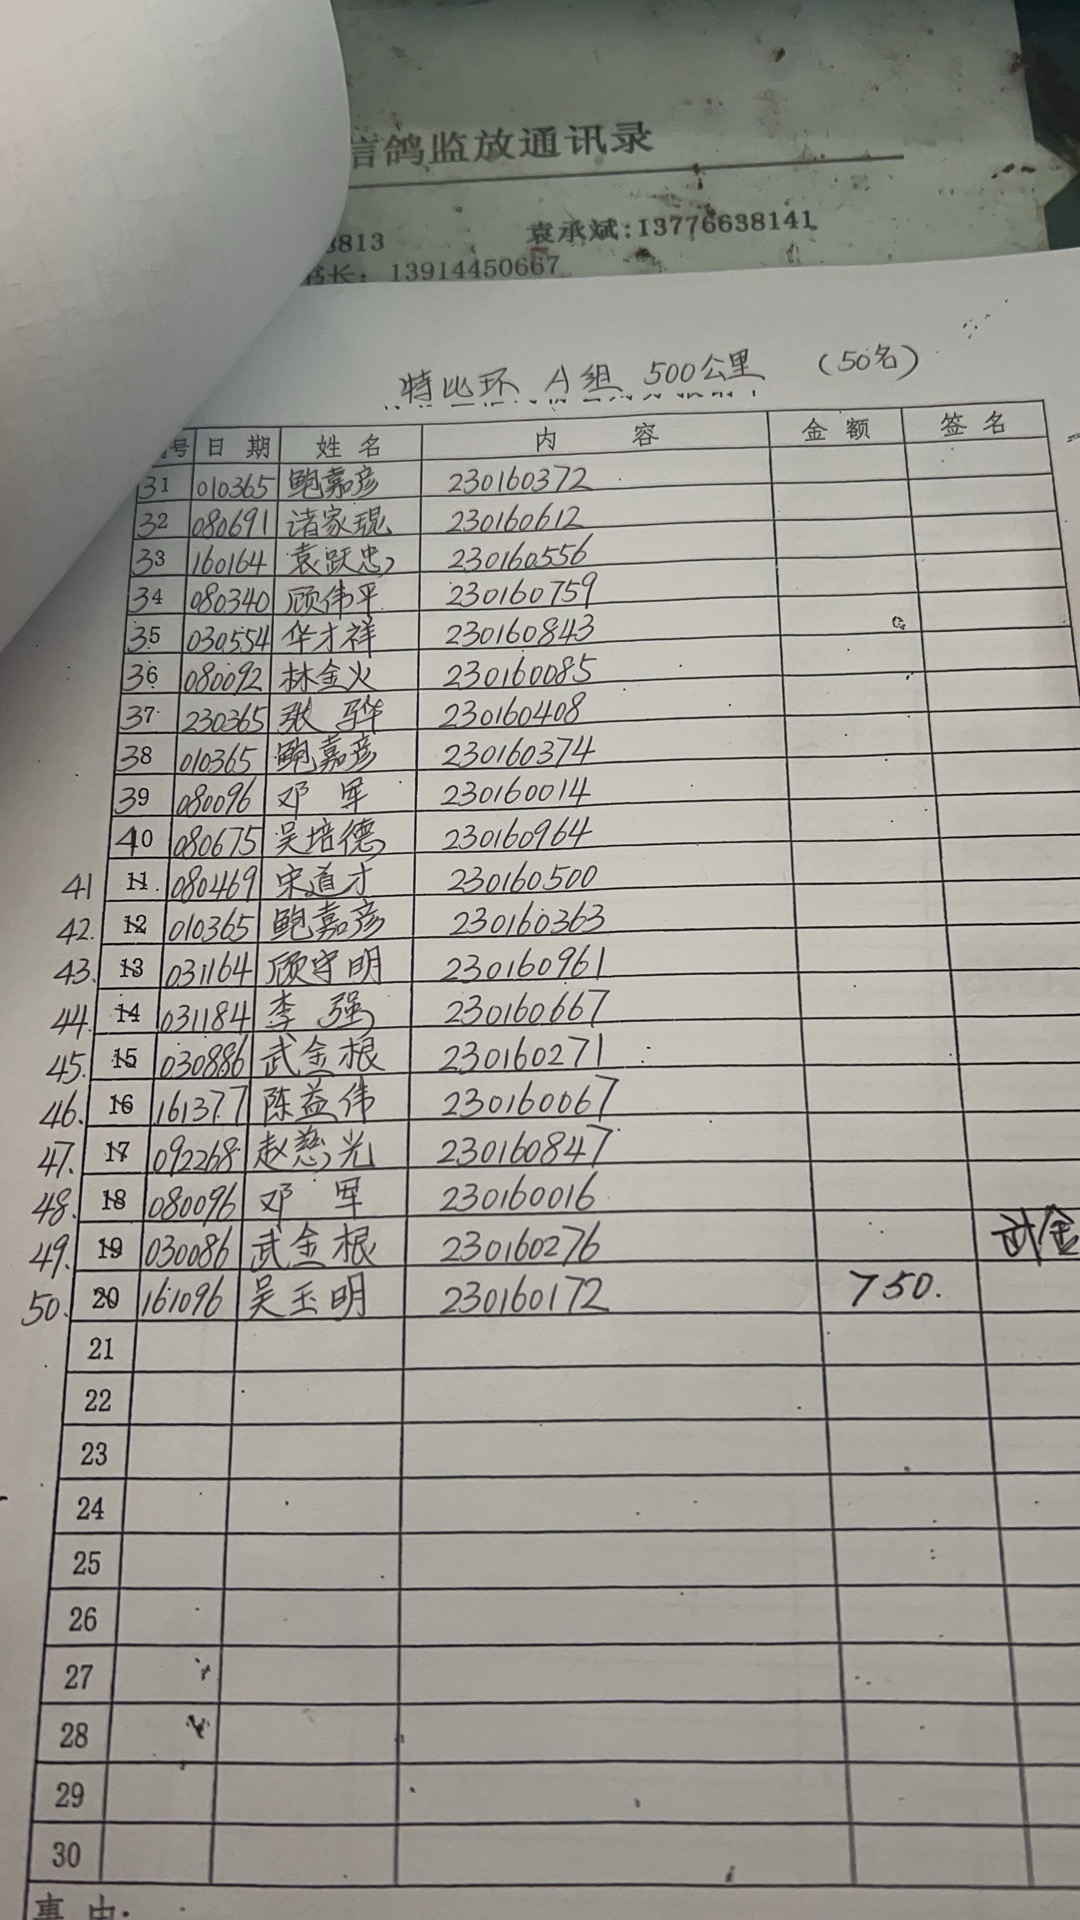 信鸽监放通讯录
3813 袁承斌:13776638141
书长: 13914450667
特比环 A组 500公里 (50名)
号 日期 姓名 内容 金额 签名
31 010365 鲍嘉彦 230160372
32 080691 诸家琨 230160612
33 160164 袁跃忠 230160556
34 080340 顾伟平 230160759
35 030554 华才祥 230160843
36 080092 林金火 230160085
37 230365 张骅 230160408
38 010365 鲍嘉彦 230160374
39 080096 邓军 230160014
40 080675 吴培德 230160964
41 11 080469 宋道才 230160500
42. 12 010365 鲍嘉彦 230160363
43. 13 031164 顾守明 230160961
44. 14 031184 李强 230160667
45. 15 030886 武金根 230160271
46. 16 161377 陈益伟 230160067
47. 17 092268 赵慈光 230160847
48. 18 080096 邓军 230160016
49. 19 030086 武金根 230160276 武金
50. 20 161096 吴玉明 230160172 750.
21
22
23
24
25
26
27
28
29
30
事由: